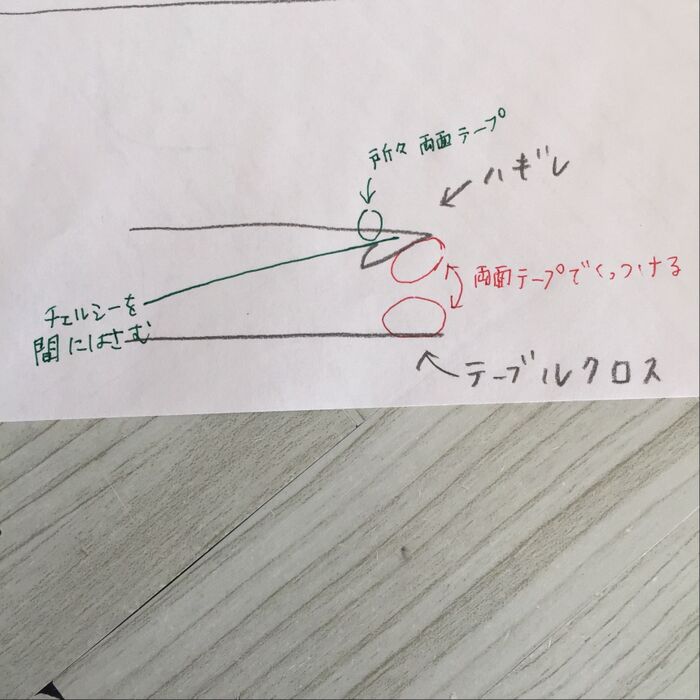 所々 両面テープ
ハギレ
両面テープでくっつける
チェルシーを
間にはさむ
テーブルクロス